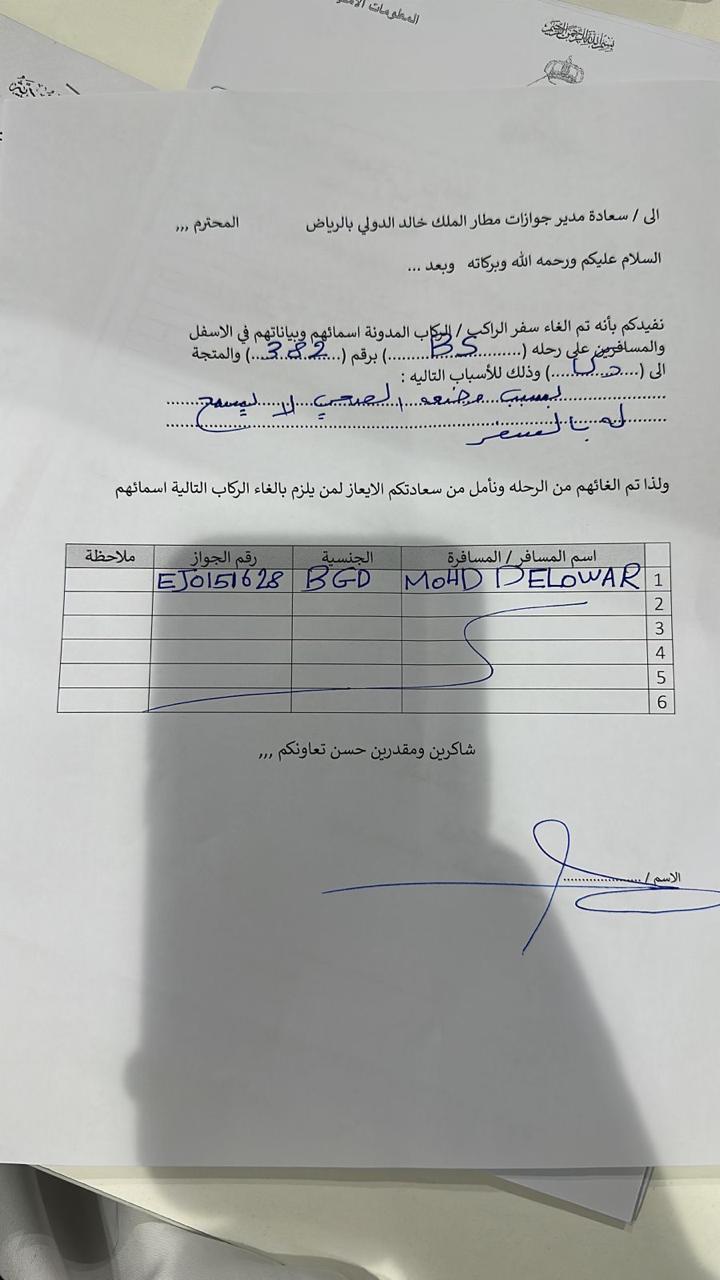 المعلومات
بسم الله الرحمن الرحيم
الى / سعادة مدير جوازات مطار الملك خالد الدولي بالرياض المحترم ,,,
السلام عليكم ورحمه الله وبركاته وبعد ...
نفيدكم بأنه تم الغاء سفر الراكب / الركاب المدونة اسمائهم وبياناتهم في الاسفل
والمسافرين على رحله (.......BS.......) برقم (...382...) والمتجة
الى (...دكا...) وذلك للأسباب التاليه :
بسبب وضعه الصحي لا يسمح
له بالسفر
ولذا تم الغائهم من الرحله ونأمل من سعادتكم الايعاز لمن يلزم بالغاء الركاب التالية اسمائهم
اسم المسافر / المسافرة الجنسية رقم الجواز ملاحظة
1 MOHD DELOWAR BGD EJ0151628
2
3
4
5
6
شاكرين ومقدرين حسن تعاونكم ,,,
الاسم / ....................